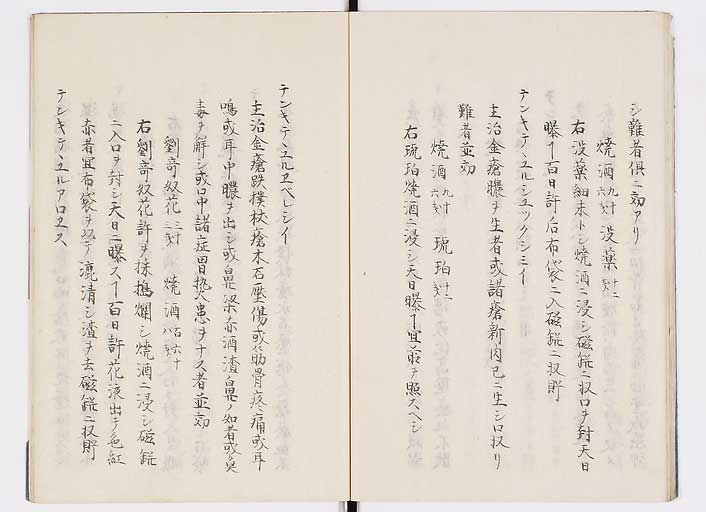 シ難者倶ニ効アリ
焼酒 九十六戔 没薬 廿二戔
右没薬細末トシ焼酒ニ浸シ磁鋎ニ収口ヲ封天日
曝丁百日許后布袋ニ入磁鋎ニ収貯
テンキテヽユルシユックシミイ
主治金瘡膿ヲ生者或諸瘡新肉已ニ生シ口収リ
難者並効
焼酒 九十六戔 琥珀 廿二戔
右琥珀焼酒ニ浸シ天日曝丁宜前ヲ照スヘシ
テンキテヽユルヱベレシイ
主治金瘡跌撲杖瘡木石壓傷或筋骨疼痛或耳
鳴或耳中膿ヲ出シ或鼻梁赤酒渣鼻ノ如者或臭
毒ヲ解シ或口中諸症因熱患ヲナス者並効
劉寄奴花 焼酒
右劉寄奴花許ヲ採搗爛シ焼酒ニ浸シ磁鋎
ニ入口ヲ封シ天日ニ曝ス丁百日許花液出テ色紅
赤者宜布袋ヲ以テ漉清シ渣ヲ去磁鋎ニ収貯
テンキテヽユルアロヱス